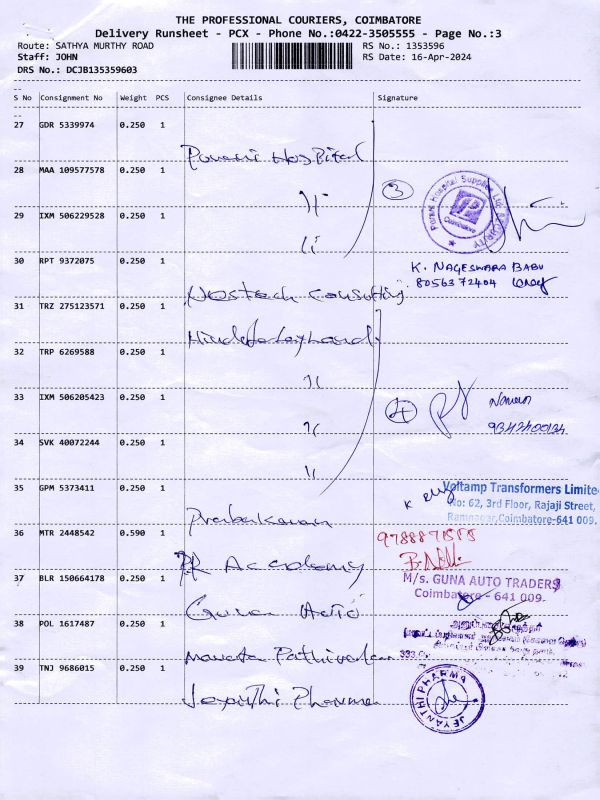 THE PROFESSIONAL COURIERS, COIMBATORE
Delivery Runsheet - PCX - Phone No.:0422-3505555 - Page No.:3
Route: SATHYA MURTHY ROAD
Staff: JOHN
DRS No.: DCJB135359603
RS No.: 1353596
RS Date: 16-Apr-2024
S No Consignment No Weight PCS Consignee Details Signature
27 GDR 5339974 0.250 1
Porani Hospital
28 MAA 109577578 0.250 1
3
Porani Hospital Supplies
Coimbatore
29 IXM 506229528 0.250 1
30 RPT 9372075 0.250 1
K. NAGESWARA BABU
8056372404
Nostech Consulting
31 TRZ 275123571 0.250 1
32 TRP 6269588 0.250 1
33 IXM 506205423 0.250 1
4
34 SVK 40072244 0.250 1
35 GPM 5373411 0.250 1
Voltamp Transformers Limite
No: 62, 3rd Floor, Rajaji Street,
Ramnagar, Coimbatore-641 009.
Prabakaran
36 MTR 2448542 0.590 1
PR Accdomy
37 BLR 150664178 0.250 1
M/s. GUNA AUTO TRADERS
Coimbatore - 641 009.
Guna Auto
38 POL 1617487 0.250 1
39 TNJ 9686015 0.250 1
JEYANTHI PHARMA